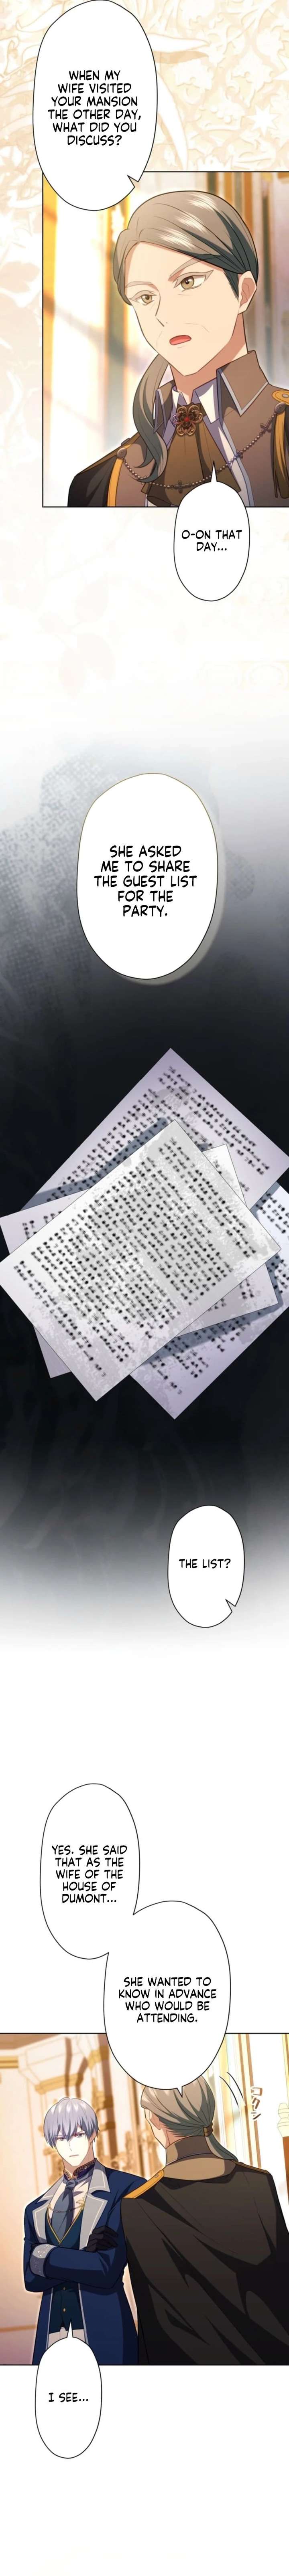 WHEN MY
WIFE VISITED
YOUR MANSION
THE OTHER DAY,
WHAT DID YOU
DISCUSS?
O-ON THAT
DAY...
SHE ASKED
ME TO SHARE
THE GUEST LIST
FOR THE
PARTY.
THE LIST?
YES. SHE SAID
THAT AS THE
WIFE OF THE
HOUSE OF
DUMONT...
SHE WANTED TO
KNOW IN ADVANCE
WHO WOULD BE
ATTENDING.
I SEE...